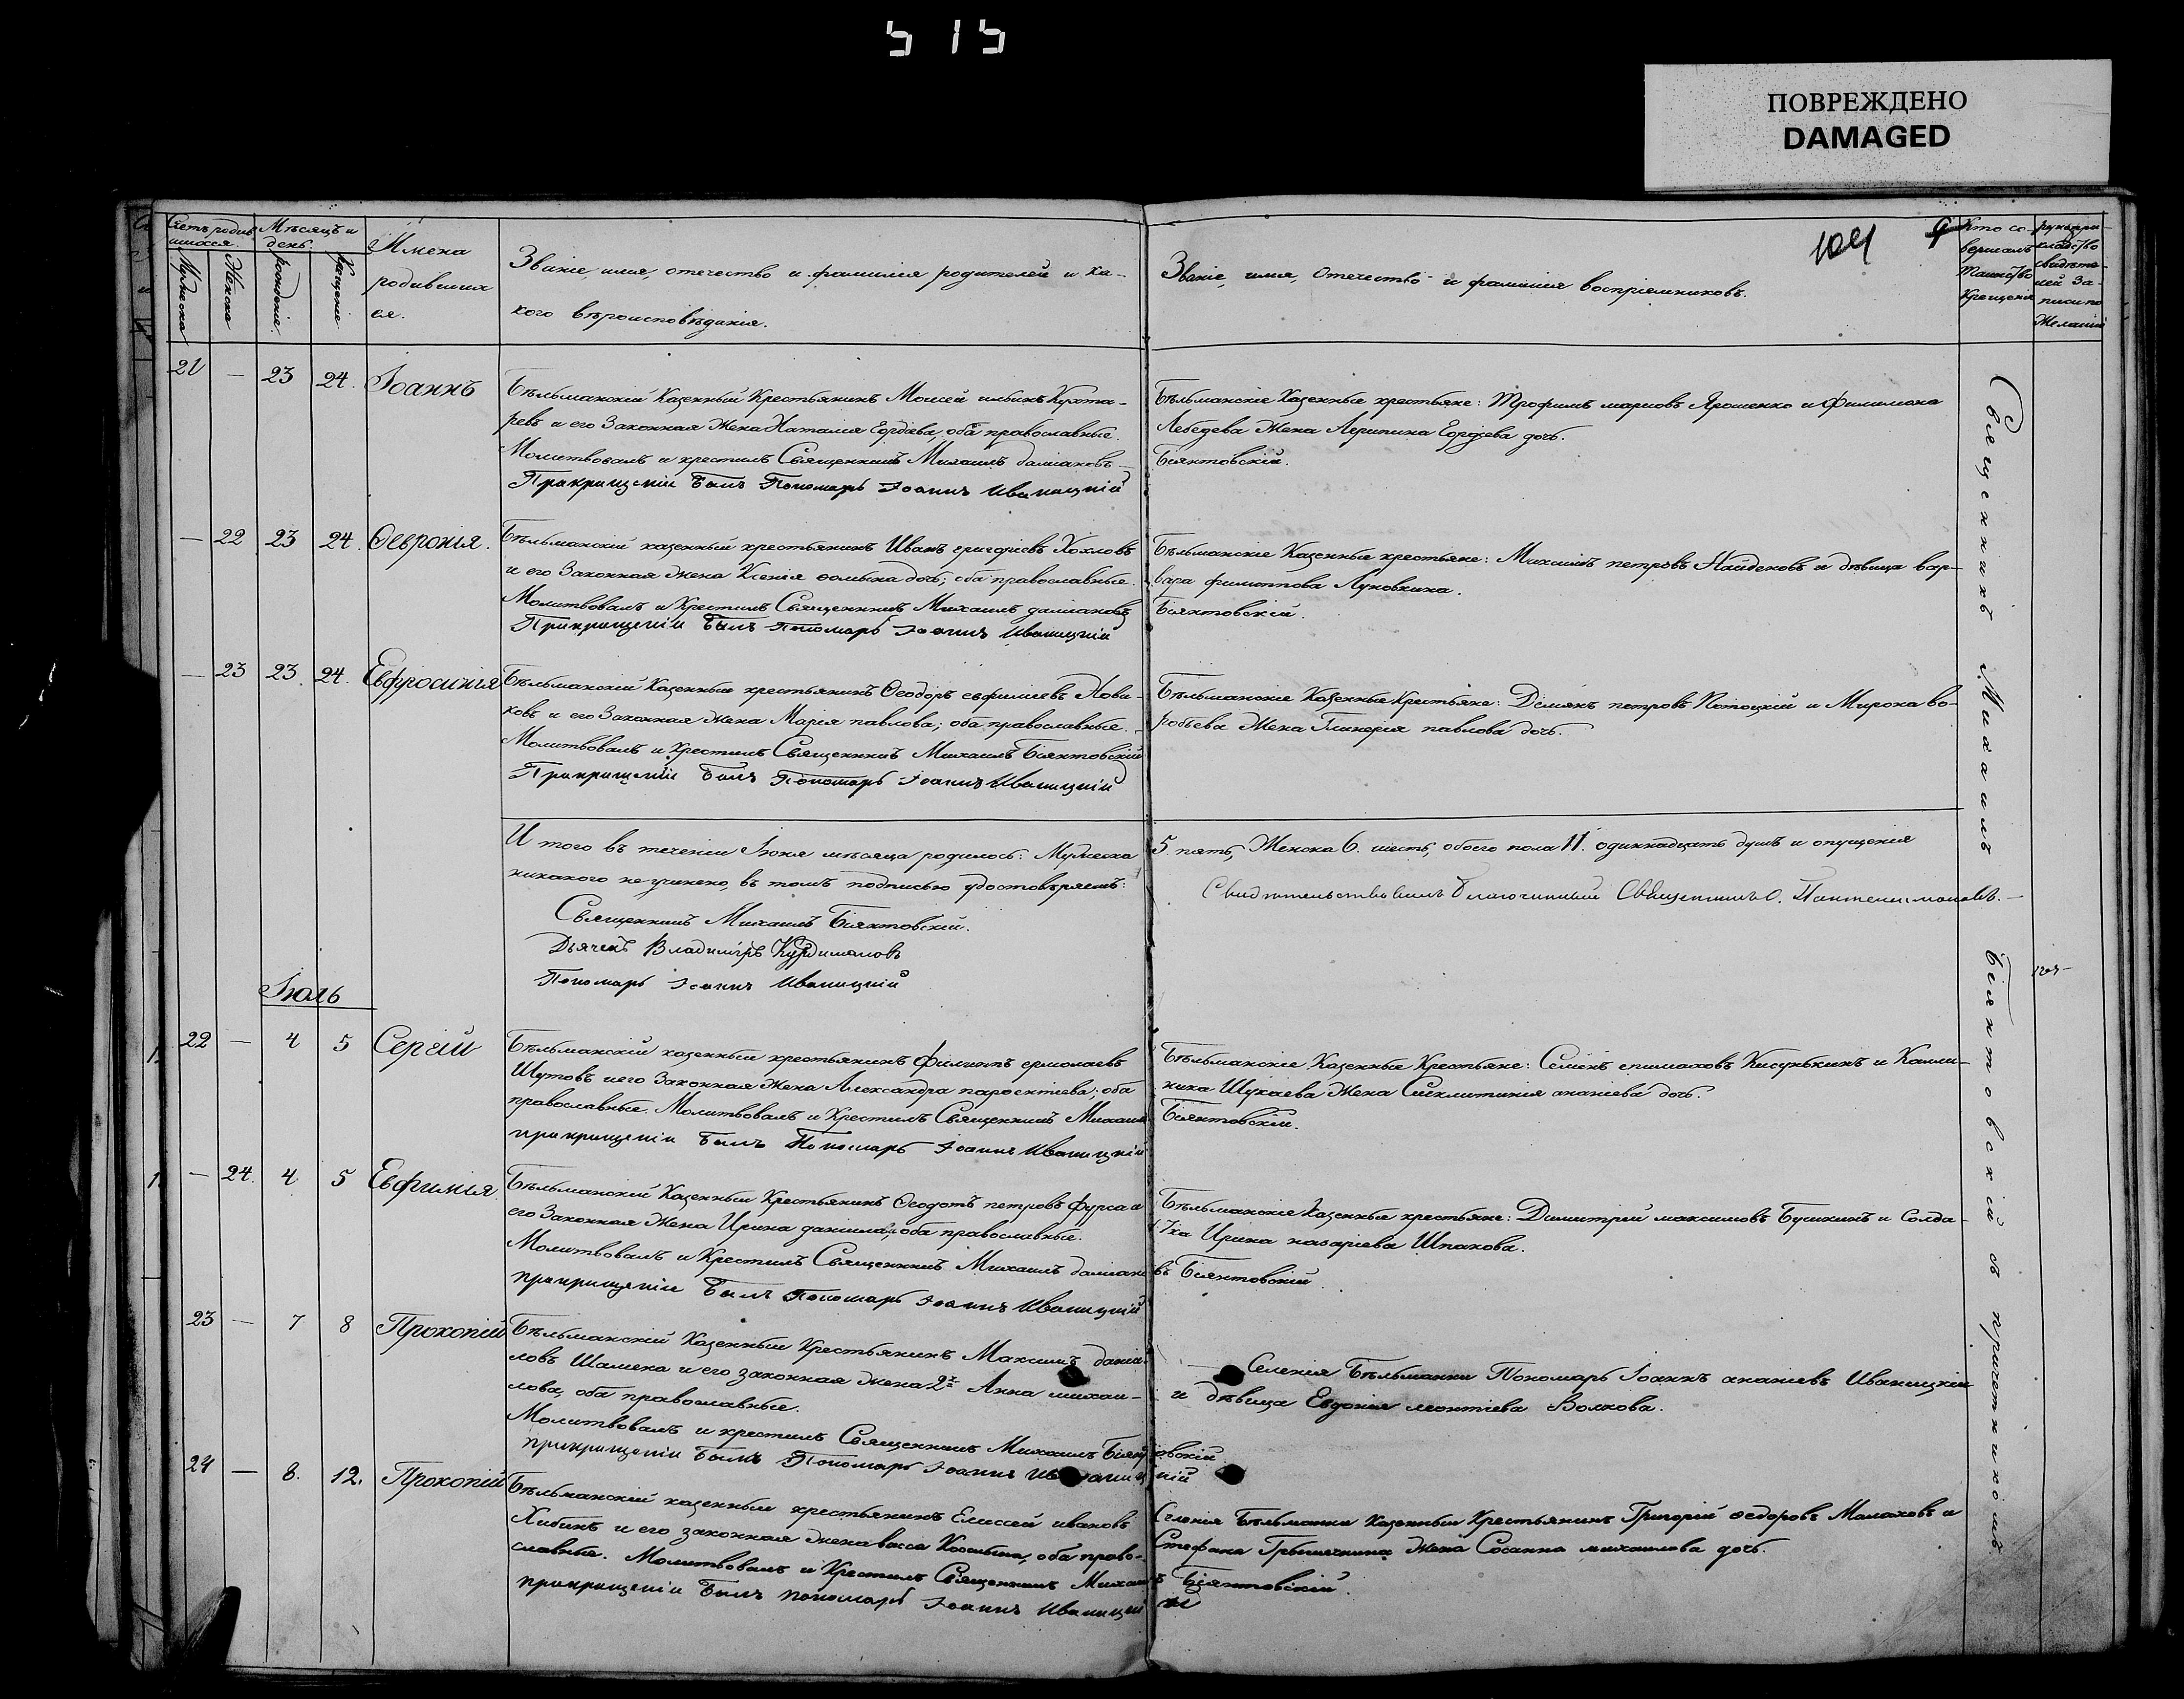 515
ПОВРЕЖДЕНО
DAMAGED
104
9
Счетъ родив
шихся.
Мѣсяцъ и
день.
Мужеска
Женска
рожденіе
крещеніе
Имена
родивших
ся.
Званіе, имя, отечество и фамилія родителей и ка-
кого вѣроисповѣданія.
Званіе, имя, Отечество и фамилія воспріемниковъ.
Кто со-
вершалъ
таинство
Крещенія
рукопри-
кладство
свидѣте-
лей За-
писи по
Желанію
21 — 23 24. Іоаннъ
Бѣльманскій Казенный Крестьянинъ Моисей ильинъ Кухта-
ревъ и его Законная Жена Наталія Еордева, оба православные.
Молитвовалъ и крестилъ Священникъ Михаилъ даміановъ
Прикрищеніи былъ Пономарь Іоаннъ Иваницкій
Бѣльманскіе Казенные крестьяне: Трофимъ марковъ Ярошенко и Филимона
Лебедева Жена Агрипина дочь.
Біянтовскій.
— 22 23 24. Ѳевронія.
Бѣльманскій казенный крестьянинъ Иванъ григоріевъ Хохловъ
и его Законная жена Ксенія дочь; оба православные.
Молитвовалъ и Крестилъ Священникъ Михаилъ даміановъ
Прикрищеніи былъ Пономарь Іоаннъ Иваницкій
Бѣльманскіе Казенные крестьяне: Михаилъ петровъ Найденовъ и дѣвица вар-
вара филиппова Луковкина.
Біянтовскій.
— 23 23. 24. Евфросинія
Бѣльманскій Казенный крестьянинъ Ѳеодоръ евфимиевъ Нови-
ковъ и его Законная жена Марія павлова; оба православные.
Молитвовалъ и Крестилъ Священникъ Михаилъ Біянтовскій
Прикрищеніи былъ Пономарь Іоаннъ Иваницкій
Бѣльманскіе Казенные Крестьяне: Деміянъ петровъ Потоцкій и Мирона во-
робьева Жена Гликерія павлова дочь.
И того въ теченіи Іюня мѣсяца родилось: Мужеска
5. пять, Женска 6. шесть, обоего пола 11. одиннадцать душъ и опущенія
никакого не учинено, въ томъ подписью удостовѣряемъ:
Священникъ Михаилъ Біянтовскій.
Дьячекъ Владиміръ
Пономарь Іоаннъ Иваницкій
Свидѣтельствовалъ благочинный Священникъ
Іюль
22 — 4 5 Сергій
Бѣльманскій казенный крестьянинъ Филиппъ ермолаевъ
Шутовъ и его Законная Жена Александра парѳентіева; оба
православные. Молитвовалъ и Крестилъ Священникъ Михаилъ
прикрищеніи былъ Пономарь Іоаннъ Иваницкій
Бѣльманскіе Казенные Крестьяне: Семенъ епимаховъ Кисунькинъ и Калли-
ника Шукаева Жена Сигклитикия ананіева дочь.
Біянтовскій.
— 24. 4 5 Евфимія.
Бѣльманскій Казенный Крестьянинъ Ѳеодотъ петровъ Фурса и
его Законная Жена Ирина даніила; оба православные.
Молитвовалъ и Крестилъ Священникъ Михаилъ даміано
прикрищеніи былъ Пономарь Іоаннъ Иваницкій
Бѣльманскіе Казенные крестьяне: Димитрій максимовъ Бушкинъ и Солда-
тка Ирина назаріева Шпакова.
въ Біянтовскій
23 — 7 8 Прокопій
Бѣльманскій Казенный Крестьянинъ Максимъ дани-
ловъ Шамека и его законная жена 2я Анна михаи-
лова, оба православные.
Молитвовалъ и крестилъ Священникъ Михаилъ Біянтовскій
прикрищеніи былъ Пономарь Іоаннъ Иваницкій
Селенія Бѣльманки Пономарь Іоаннъ ананіевъ Иваницкій
и дѣвица Евдокія леонтіева Волкова.
24 — 8. 12. Прокопій
Бѣльманскій казенный крестьянинъ Елисей ивановъ
Хибинъ и его законная жена васса оба право-
славные. Молитвовалъ и Крестилъ Священникъ Михаилъ
прикрищеніи былъ пономарь Іоаннъ Иваницкій
Селенія Бѣльманки Казенный Крестьянинъ Григорій ѳедоровъ Малаховъ и
Стефана Жена Сосанна михаилова дочь.
Біянтовскій.
Священникъ Михаилъ Біянтовскій съ причетникомъ